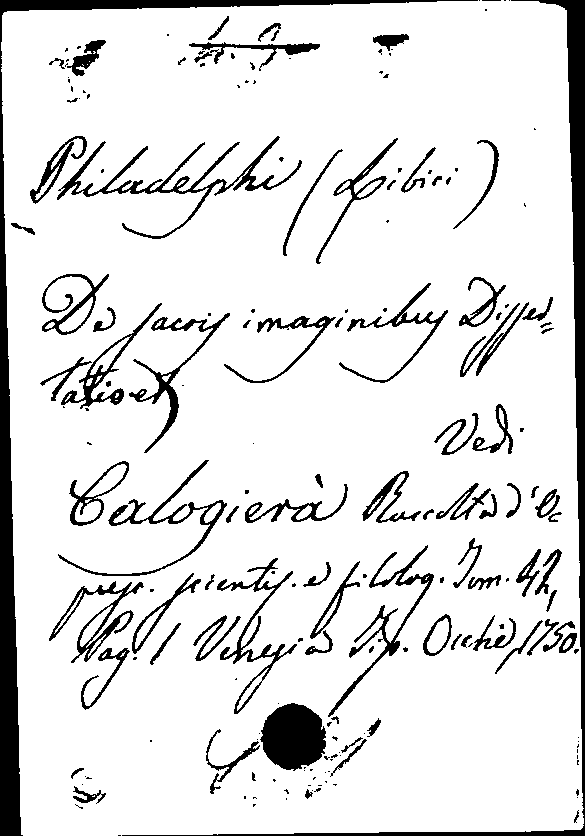 Philadelphi (Libici)
De sacris imaginibus Disser=
tationes
Vedi
Calogierà Raccolta d'O=
pusc. scientif. e filolog. Tom. 42,
Pag. 1 Venezia Tip. Occhi, 1750.